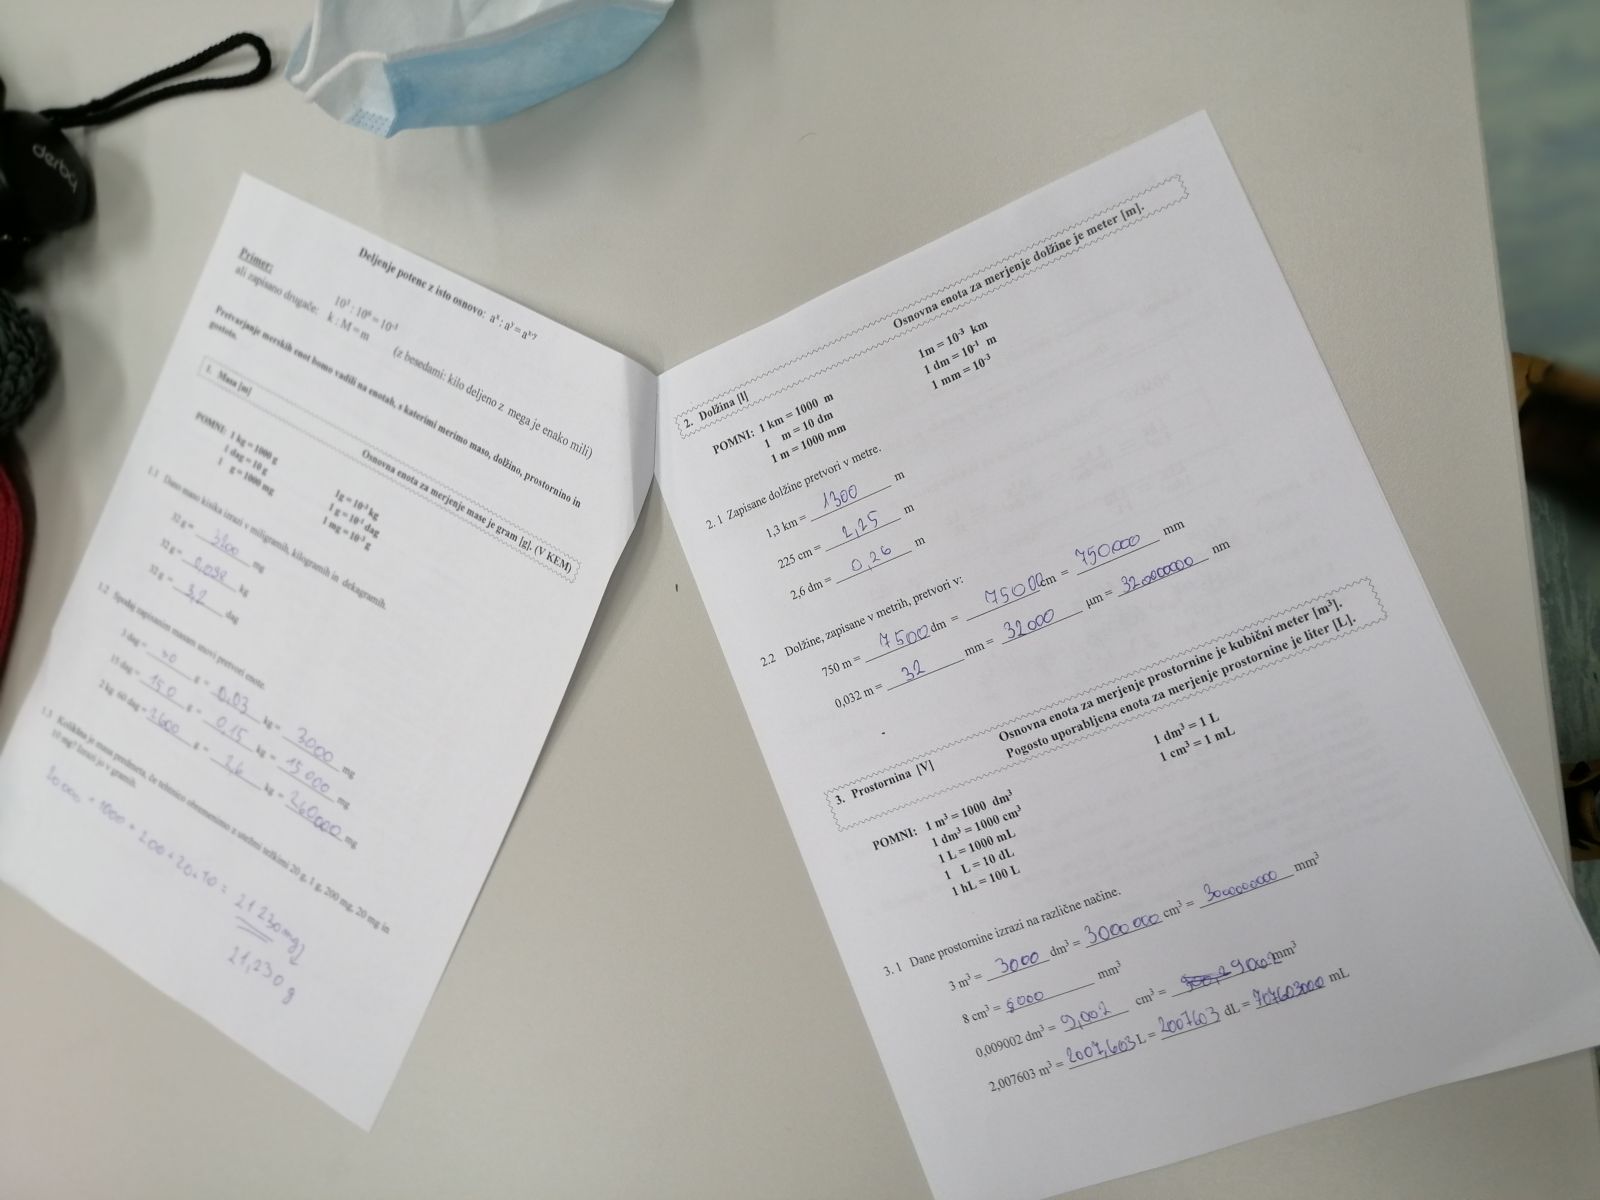 derby
Deljenje potenc z isto osnovo: aˣ : aʸ = aˣ⁻ʸ
Primer:
10³ : 10⁶ = 10⁻³
ali zapisano drugače: k : M = m
(z besedami: kilo deljeno z mega je enako mili)
Pretvarjanje merskih enot bomo vadili na enotah, s katerimi merimo maso, dolžino, prostornino in
gostoto.
1. Masa [m]
Osnovna enota za merjenje mase je gram [g]. (V KEM)
POMNI: 1 kg = 1000 g
1 dag = 10 g
1 g = 1000 mg
1g = 10⁻³ kg
1 g = 10⁻¹ dag
1 mg = 10⁻³ g
1.1 Dano maso kisika izrazi v miligramih, kilogramih in dekagramih.
32 g = mg
32 g = 0,032 kg
32 g = 3,2 dag
1.2 Spodaj zapisanim masam pretvori enote.
3 dag = 30 g = 0,03 kg = 3000 mg
15 dag = 150 g = 0,15 kg = 15 000 mg
2 kg 60 dag = 2600 g = 2,6 kg = 260000 mg
1.3 Kolikšna je masa predmeta, če tehtnico obremenimo z utežmi 20 g, 1 g, 200 mg, 20 mg in
10 mg? Izrazi jo v gramih.
20 000 + 1000 + 200 + 20 + 10 = 21 230 mg
21,230 g
2. Dolžina [l]
Osnovna enota za merjenje dolžine je meter [m].
POMNI: 1 km = 1000 m
1 m = 10 dm
1 m = 1000 mm
1m = 10⁻³ km
1 dm = 10⁻¹ m
1 mm = 10⁻³
2. 1 Zapisane dolžine pretvori v metre.
1,3 km = 1300 m
225 cm = 2,25 m
2,6 dm = 0,26 m
2.2 Dolžine, zapisane v metrih, pretvori v:
750 m = 7500 dm = 75000 cm = 750000 mm
0,032 m = 32 mm = 32000 µm = 32000000 nm
3. Prostornina [V]
Osnovna enota za merjenje prostornine je kubični meter [m³].
Pogosto uporabljena enota za merjenje prostornine je liter [L].
POMNI: 1 m³ = 1000 dm³
1 dm³ = 1000 cm³
1 L = 1000 mL
1 L = 10 dL
1 hL = 100 L
1 dm³ = 1 L
1 cm³ = 1 mL
3. 1 Dane prostornine izrazi na različne načine.
3 m³ = 3000 dm³ = 3000 000 cm³ = 3000000000 mm³
8 cm³ = 8000 mm³
0,009002 dm³ = 9,002 cm³ = 9002 mm³
2,007603 m³ = 2007,603 L = 2007603 dL = mL